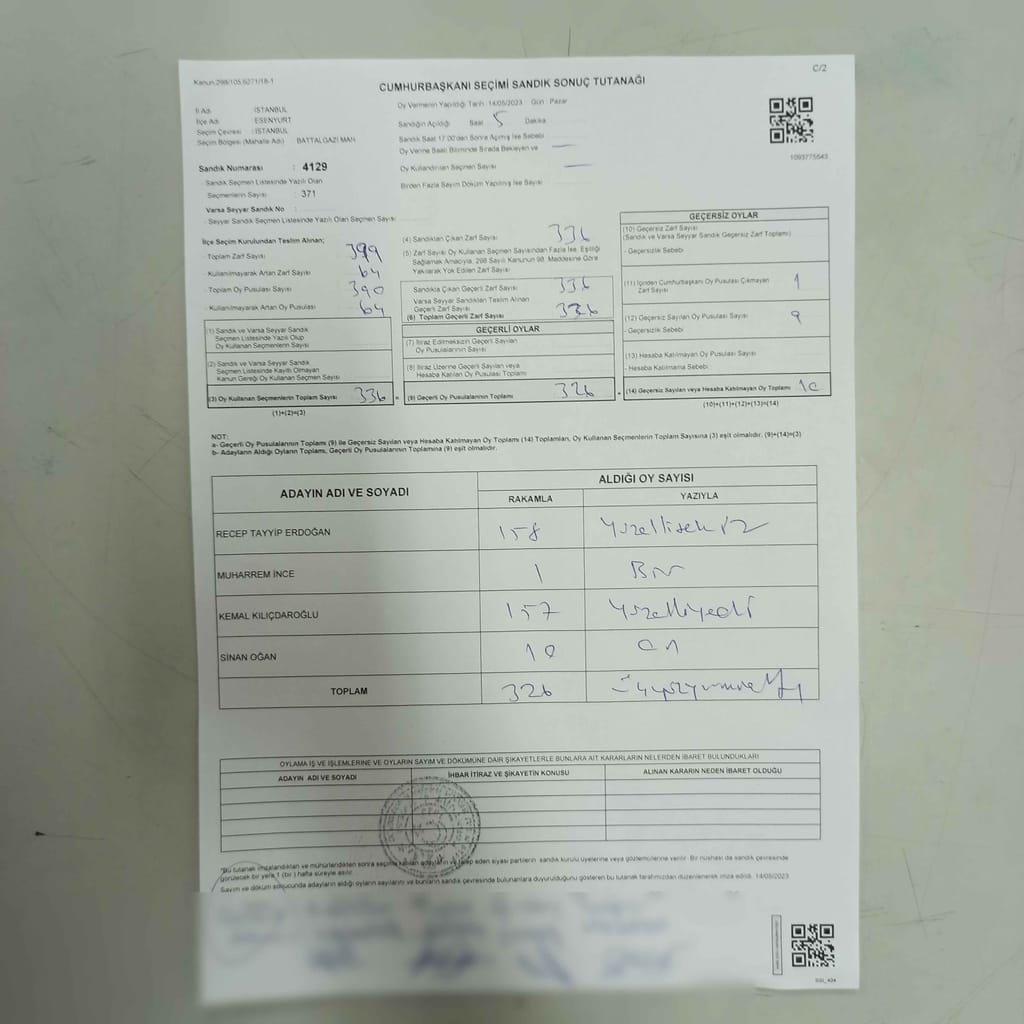 Kanun:298/105 6271/18-1
C/2
CUMHURBAŞKANI SEÇİMİ SANDIK SONUÇ TUTANAĞI
İl Adı : İSTANBUL
İlçe Adı : ESENYURT
Seçim Çevresi : İSTANBUL
Seçim Bölgesi (Mahalle Adı) BATTALGAZİ MAH
Oy Vermenin Yapıldığı Tarih :14/05/2023 Gün : Pazar
Sandığın Açıldığı Saat 5 Dakika
Sandık Saat 17:00'den Sonra Açılmış İse Sebebi
Oy Verme Saati Bitiminde Sırada Bekleyen ve
Oy Kullandırılan Seçmen Sayısı
Birden Fazla Sayım Döküm Yapılmış İse Sayısı
1093775543
Sandık Numarası : 4129
- Sandık Seçmen Listesinde Yazılı Olan
Seçmenlerin Sayısı : 371
Varsa Seyyar Sandık No :
- Seyyar Sandık Seçmen Listesinde Yazılı Olan Seçmen Sayısı
İlçe Seçim Kurulundan Teslim Alınan;
- Toplam Zarf Sayısı 399
- Kullanılmayarak Artan Zarf Sayısı 64
- Toplam Oy Pusulası Sayısı 390
- Kullanılmayarak Artan Oy Pusulası 64
(1) Sandık ve Varsa Seyyar Sandık
Seçmen Listesinde Yazılı Olup
Oy Kullanan Seçmenlerin Sayısı
(2) Sandık ve Varsa Seyyar Sandık
Seçmen Listesinde Kayıtlı Olmayan
Kanun Gereği Oy Kullanan Seçmen Sayısı
(3) Oy Kullanan Seçmenlerin Toplam Sayısı 336
(1)+(2)=(3)
(4) Sandıktan Çıkan Zarf Sayısı 336
(5) Zarf Sayısı Oy Kullanan Seçmen Sayısından Fazla İse, Eşitliği
Sağlamak Amacıyla, 298 Sayılı Kanunun 98. Maddesine Göre
Yakılarak Yok Edilen Zarf Sayısı
Sandıkta Çıkan Geçerli Zarf Sayısı 336
Varsa Seyyar Sandıktan Teslim Alınan
Geçerli Zarf Sayısı
(6) Toplam Geçerli Zarf Sayısı 336
GEÇERLİ OYLAR
(7) İtiraz Edilmeksizin Geçerli Sayılan
Oy Pusulalarının Sayısı
(8) İtiraz Üzerine Geçerli Sayılan veya
Hesaba Katılan Oy Pusulası Toplamı
= (9) Geçerli Oy Pusulalarının Toplamı 326
GEÇERSİZ OYLAR
(10) Geçersiz Zarf Sayısı
(Sandık ve Varsa Seyyar Sandık Geçersiz Zarf Toplamı)
- Geçersizlik Sebebi
(11) İçinden Cumhurbaşkanı Oy Pusulası Çıkmayan
Zarf Sayısı 1
(12) Geçersiz Sayılan Oy Pusulası Sayısı 9
- Geçersizlik Sebebi
(13) Hesaba Katılmayan Oy Pusulası Sayısı
- Hesaba Katılmama Sebebi
+ (14) Geçersiz Sayılan veya Hesaba Katılmayan Oy Toplamı 10
(10)+(11)+(12)+(13)=(14)
NOT:
a- Geçerli Oy Pusulalarının Toplamı (9) ile Geçersiz Sayılan veya Hesaba Katılmayan Oy Toplamı (14) Toplamları, Oy Kullanan Seçmenlerin Toplam Sayısına (3) eşit olmalıdır. (9)+(14)=(3)
b- Adayların Aldığı Oyların Toplamı, Geçerli Oy Pusulalarının Toplamına (9) eşit olmalıdır.
ADAYIN ADI VE SOYADI
ALDIĞI OY SAYISI
RAKAMLA YAZIYLA
RECEP TAYYİP ERDOĞAN 158 Yüzellisekiz
MUHARREM İNCE 1 Bir
KEMAL KILIÇDAROĞLU 157 Yüzelliyedi
SİNAN OĞAN 10 On
TOPLAM 326 Üçyüzyirmialtı
OYLAMA İŞ VE İŞLEMLERİNE VE OYLARIN SAYIM VE DÖKÜMÜNE DAİR ŞİKAYETLERLE BUNLARA AİT KARARLARIN NELERDEN İBARET BULUNDUKLARI
ADAYIN ADI VE SOYADI İHBAR İTİRAZ VE ŞİKAYETİN KONUSU ALINAN KARARIN NEDEN İBARET OLDUĞU
*Bu tutanak imzalandıktan ve mühürlendikten sonra seçime katılan adayların ve talep eden siyasi partilerin sandık kurulu üyelerine veya gözlemcilerine verilir. Bir nüshası da sandık çevresinde
görülecek bir yere 1 (bir) hafta süreyle asılır.
Sayım ve döküm sonucunda adayların aldığı oyların sayılarını ve bunların sandık çevresinde bulunanlara duyurulduğunu gösteren bu tutanak tarafımızdan düzenlenerek imza edildi. 14/05/2023